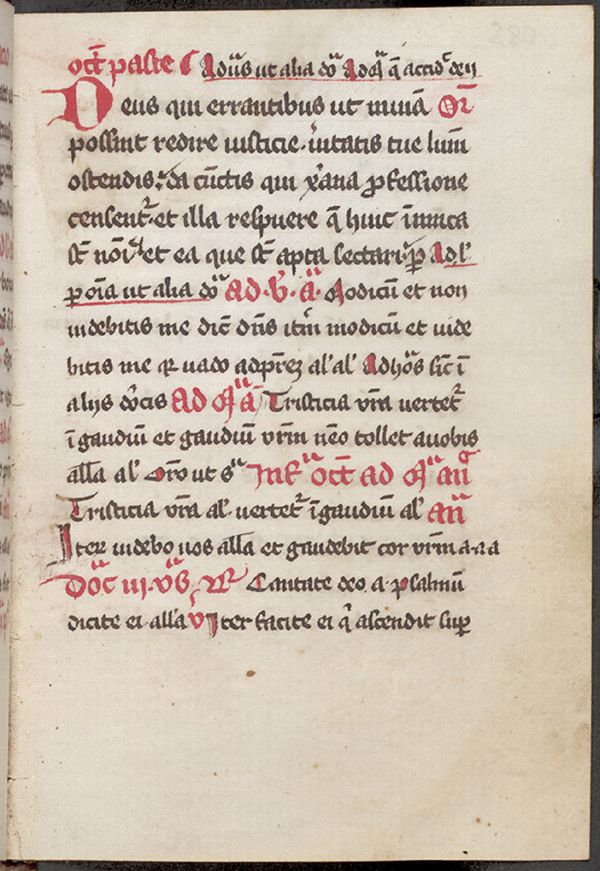 oct̄ pasce Adūs ut alia do Ad qͣ accid de ij
Deus qui errantibus ut in uiam Or̄
possint redire iusticie. ūitatis tue lum̄
ostendis. da cūctis qui xp̄iana ꝓfessione
censent᷑. et illa respuere q̄ huic īimica
st̄ noi̅ et ea que st̄ apta sectari. p̄ Ad l'
p oīa ut alia do Ad. v̄. a. Modicū et non
uidebitis me dic̄ dn̄s itm̄ modicū et uide
bitis me qr uado ad prē̄ al' al' Ad hos sic̄ ī
alijs do̅cis Ad m̄ a Tristicia vr̄a uertet᷑
ī gaudiū et gaudiū vr̄m nēo tollet a uobis
all'a al' Oro ut sͣ oct̄ ad m̄ an̄
Tristicia vr̄a al'. uertet᷑ ī gaudiū al' an̄
Iter uidebo uos all'a et gaudebit cor vr̄m a. a a
Do̅c iii. Cantate deo. a. psalmū
dicite ei. all'a v Iter facite ei q̄ ascendit suꝑ